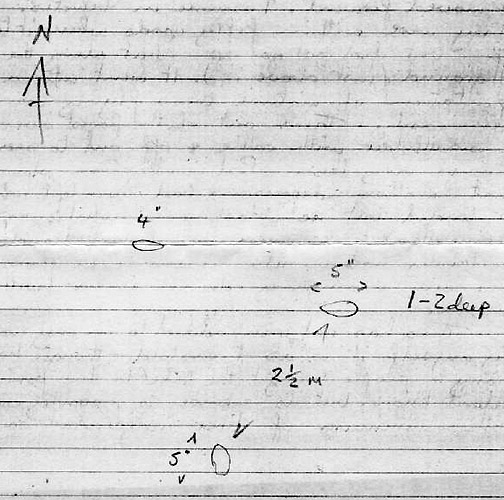 N
4"
5"
1-2 deep
2½ M
5"